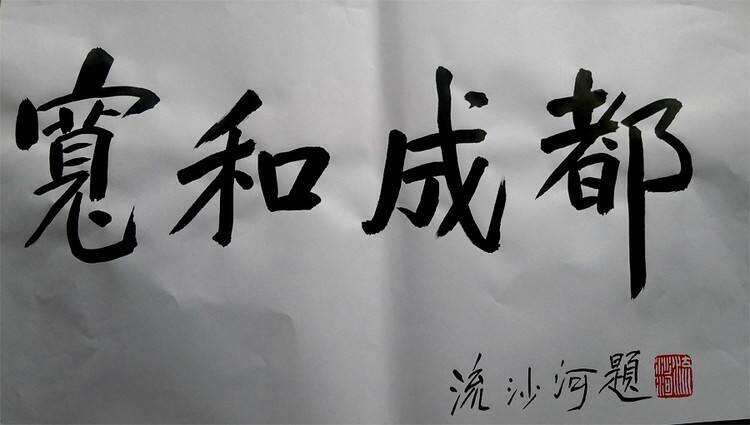 寬和成都
流沙河題